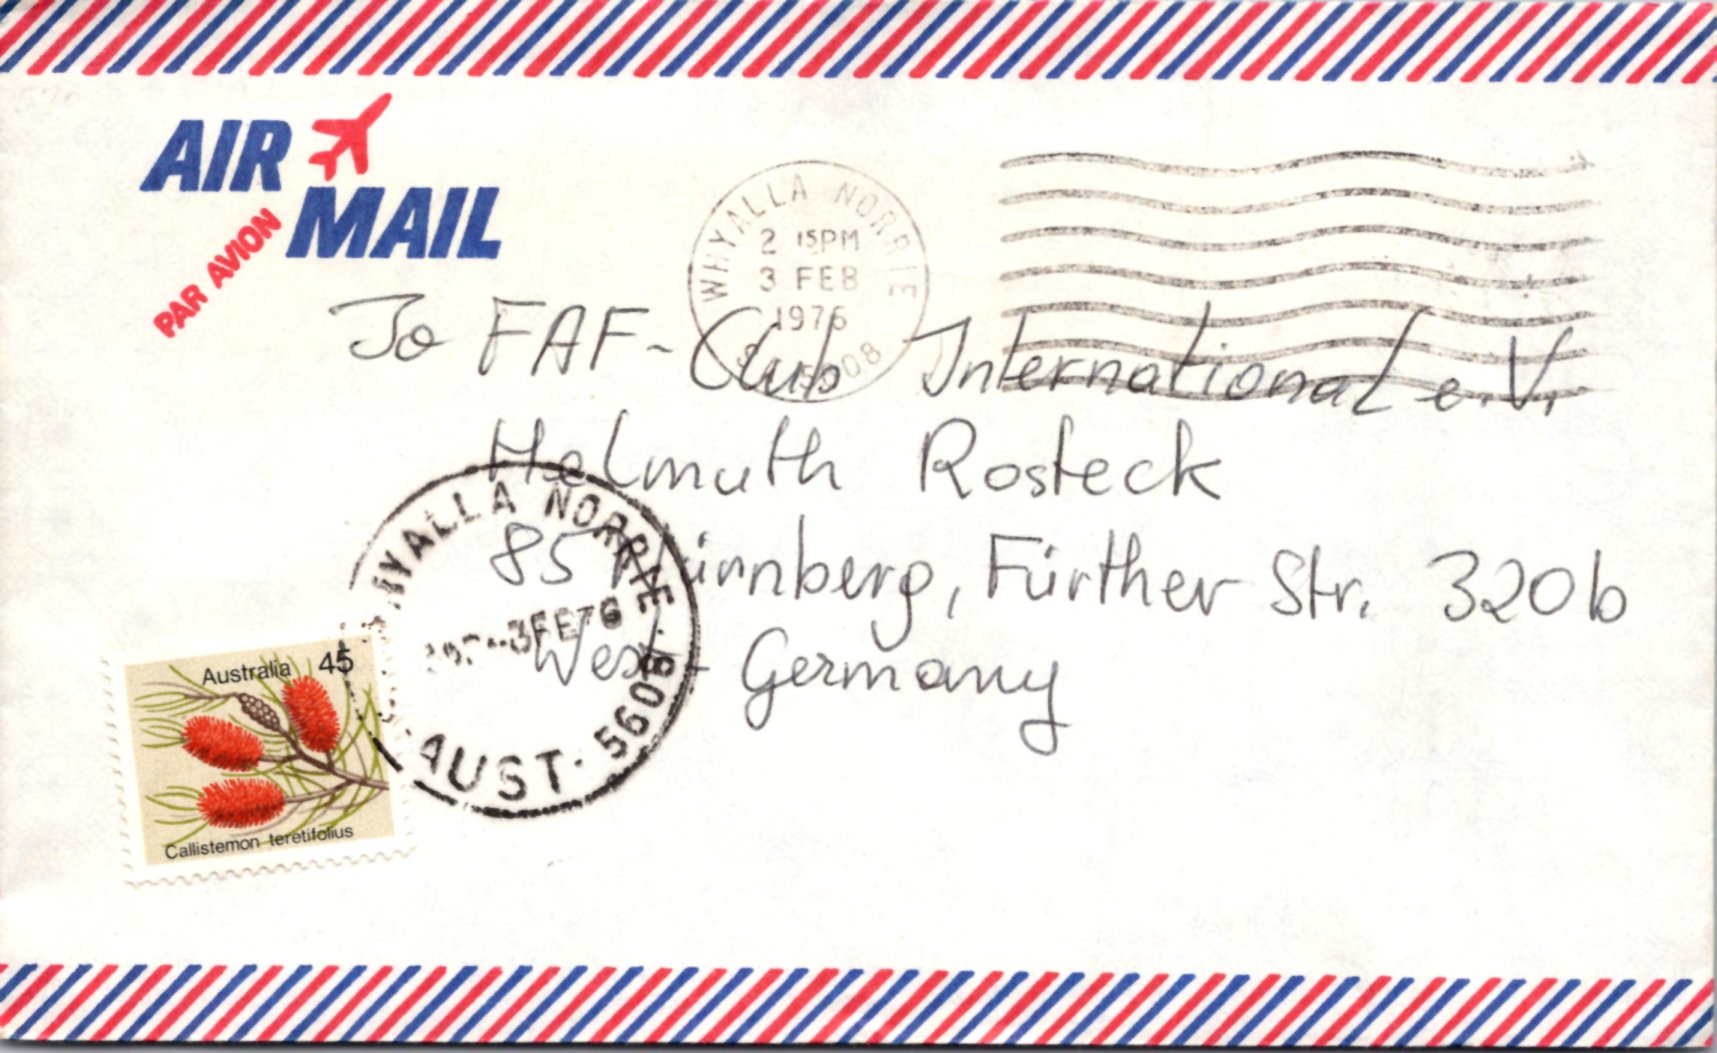 AIR
MAIL
PAR AVION
WHYALLA NORRIE
2 15PM
3 FEB
1976
5608
To FAF-Club International e.V.
Helmuth Rosteck
85 Nürnberg, Fürther Str. 320b
West-Germany
WHYALLA NORRIE
-3FE76
AUST. 5608
Australia 45
Callistemon teretifolius